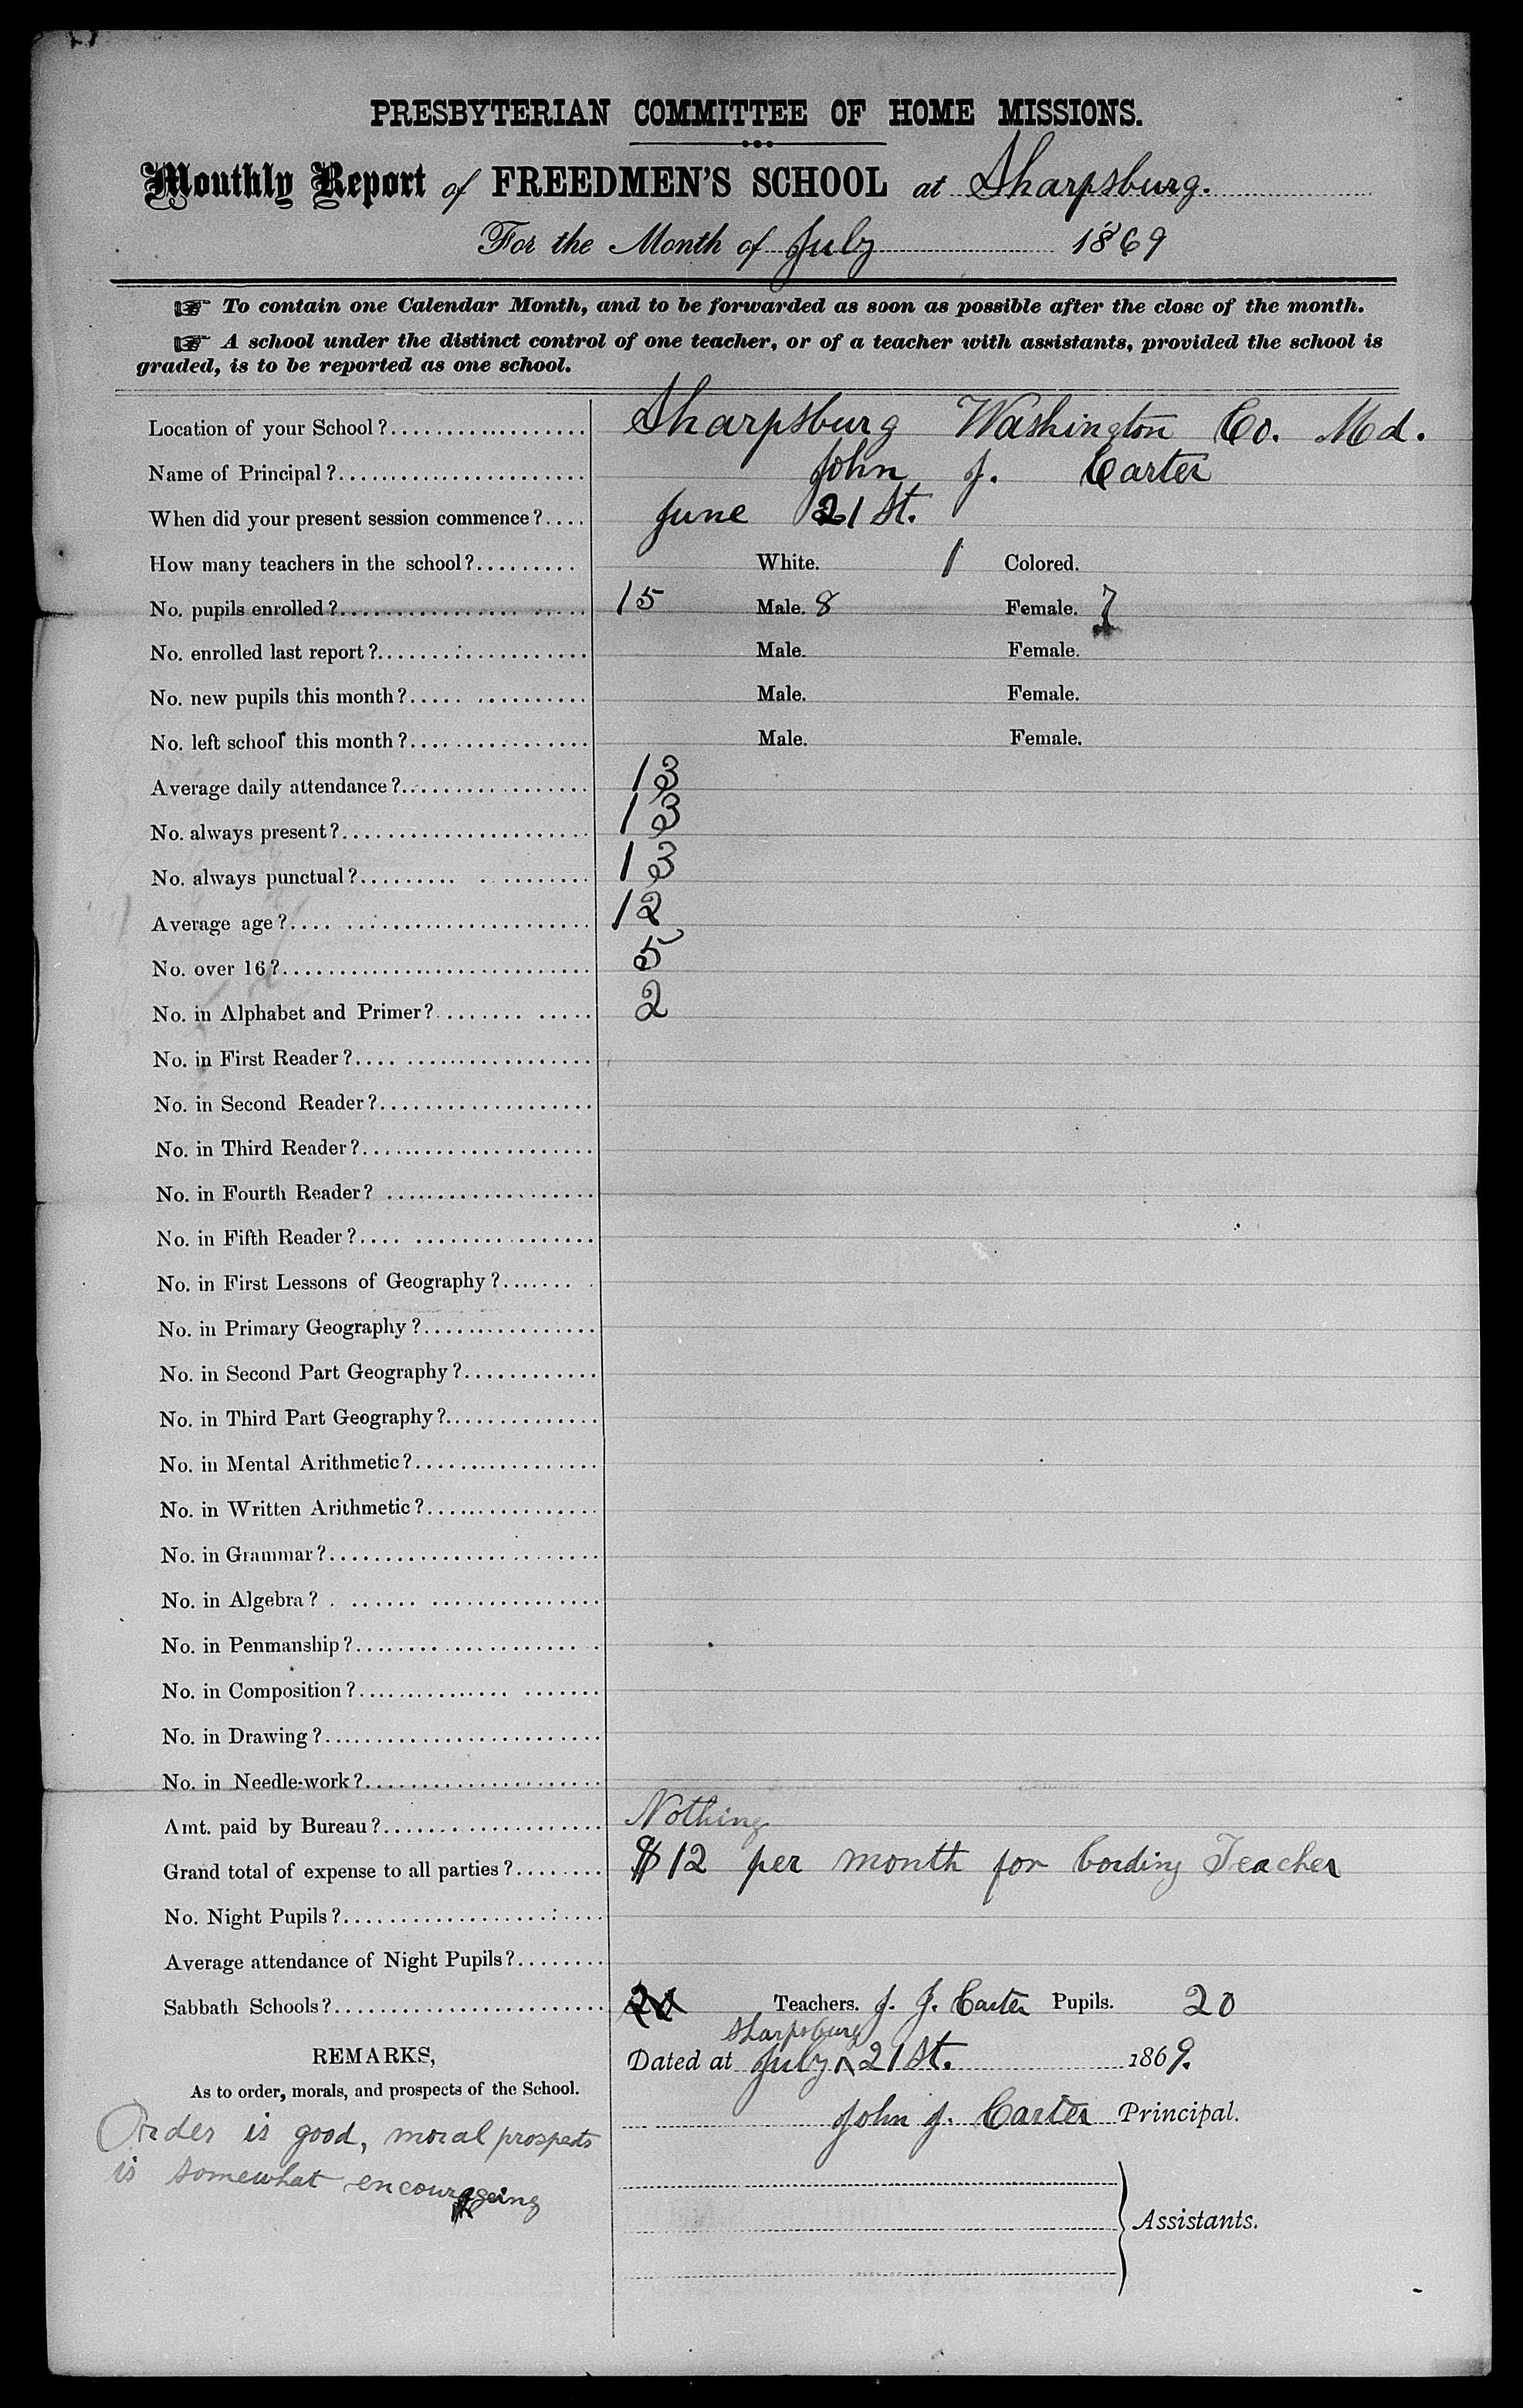 PRESBYTERIAN COMMITTEE OF HOME MISSIONS.
Monthly Report of FREEDMEN'S SCHOOL at Sharpsburg.
For the Month of July 1869
☞ To contain one Calendar Month, and to be forwarded as soon as possible after the close of the month.
☞ A school under the distinct control of one teacher, or of a teacher with assistants, provided the school is
graded, is to be reported as one school.
Location of your School? Sharpsburg Washington Co. Md.
Name of Principal? John J. Carter
When did your present session commence? June 21st.
How many teachers in the school? White. 1 Colored.
No. pupils enrolled? 15 Male. 8 Female. 7
No. enrolled last report? Male. Female.
No. new pupils this month? Male. Female.
No. left school this month? Male. Female.
Average daily attendance? 13
No. always present? 13
No. always punctual? 13
Average age? 12
No. over 16? 5
No. in Alphabet and Primer? 2
No. in First Reader?
No. in Second Reader?
No. in Third Reader?
No. in Fourth Reader?
No. in Fifth Reader?
No. in First Lessons of Geography?
No. in Primary Geography?
No. in Second Part Geography?
No. in Third Part Geography?
No. in Mental Arithmetic?
No. in Written Arithmetic?
No. in Grammar?
No. in Algebra?
No. in Penmanship?
No. in Composition?
No. in Drawing?
No. in Needle-work?
Amt. paid by Bureau? Nothing
Grand total of expense to all parties? $12 per month for bording Teacher
No. Night Pupils?
Average attendance of Night Pupils?
Sabbath Schools? 20 Teachers. J. J. Carter Pupils. 20
Sharpsburg
Dated at July ^ 21st. 1869.
John J. Carter Principal.
Assistants.
REMARKS,
As to order, morals, and prospects of the School.
Order is good, moral prospects
is somewhat encourageing